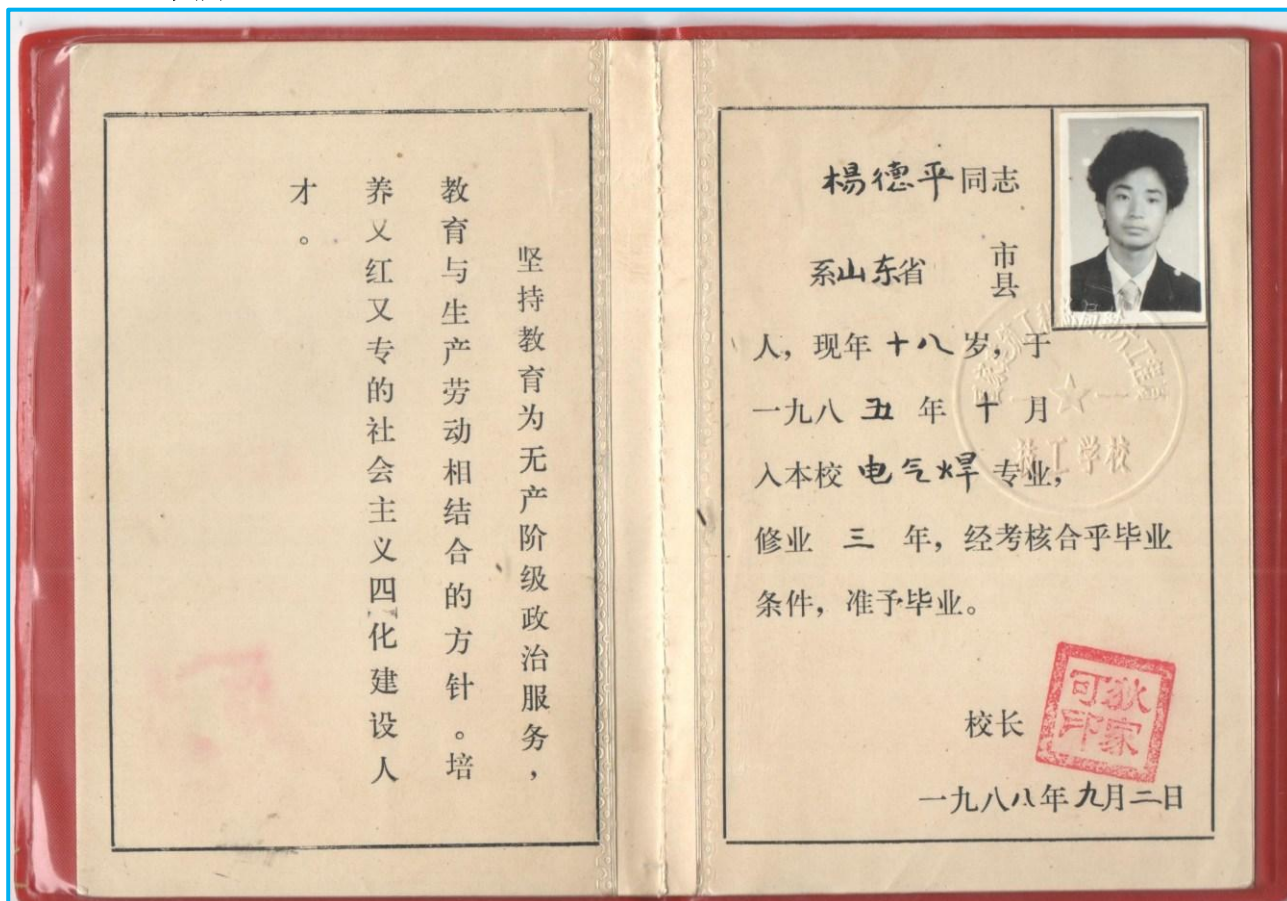 坚持教育为无产阶级政治服务，
教育与生产劳动相结合的方针。培
养又红又专的社会主义四化建设人
才。
楊德平同志
系山东省 市县
人，现年十八岁，于
一九八五年十月
入本校电气焊专业，
修业 三 年，经考核合乎毕业
条件，准予毕业。
技工学校
校长
狄家可印
一九八八年九月二日